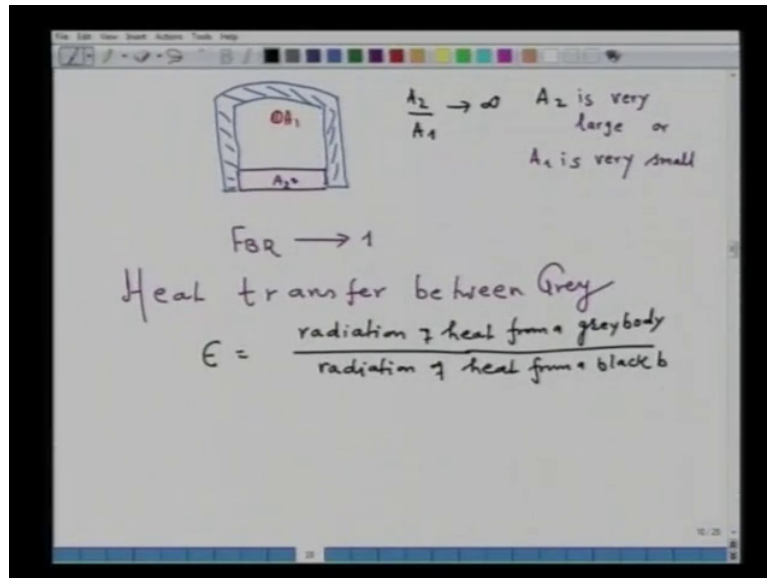 File Edit View Insert Actions Tools Help
A₂/A₁ → ∞ A₂ is very
large or
A₁ is very small
A₁
A₂
F_BR → 1
Heat transfer between Grey
ϵ = radiation of heat from a greybody
radiation of heat from a black b
10/28
28